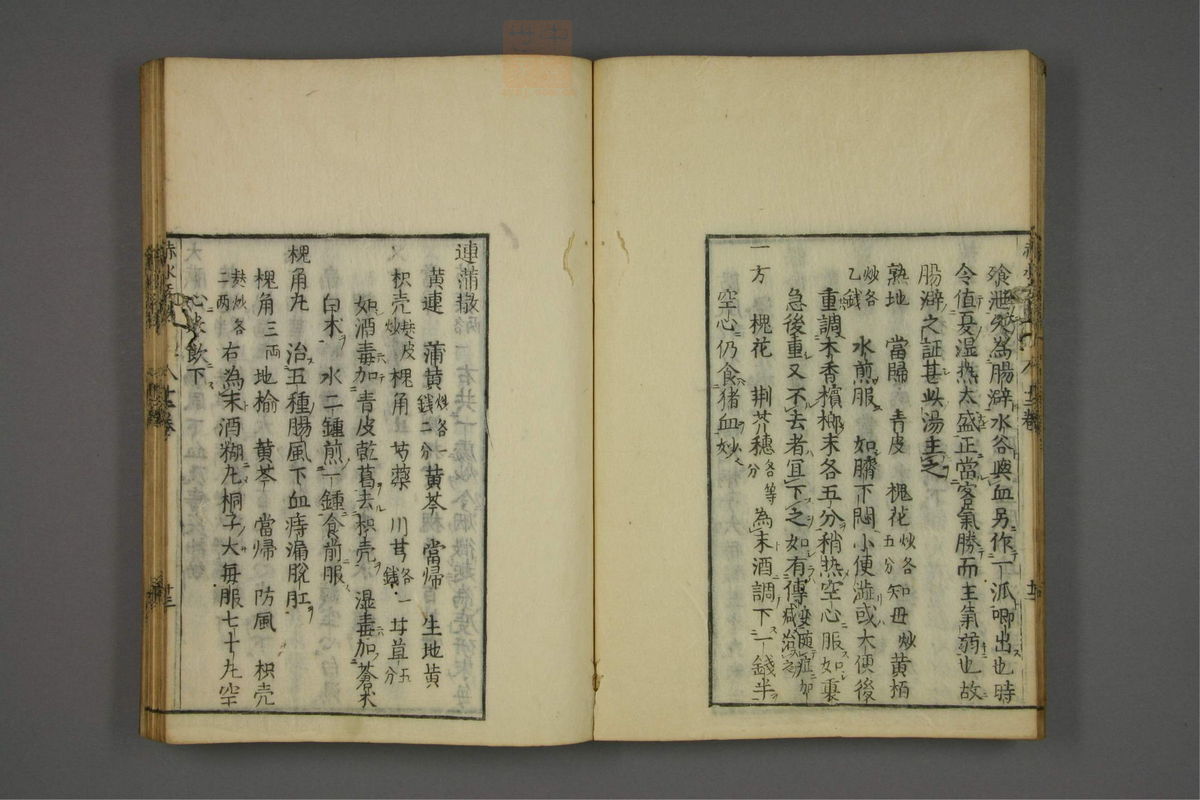 飱泄久為腸澼水谷與血另作一派唧出也時
令值夏湿熱太盛正當客氣勝而主氣弱也故
腸澼之証甚此湯主之
熟地　當歸　青皮　槐花炒各五分　知母炒黄栢
炒各乙錢　水煎服　如臍下悶小便澁或大便後
重調木香檳榔末各五分稍熱空心服如裏
急後重又不去者冝下之如有傳變随症加减治之
一方　槐花　荆芥穂各等分　為末酒調下一錢半
空心仍食猪血妙
連蒲散
黄連　蒲黄炒各一錢二分黄芩　當帰　生地黄
枳壳麩皮炒槐角　芍藥　川芎各一錢　甘草五分
如酒毒加青皮乾葛去枳壳　湿毒加蒼朮
白朮　水二鍾煎一鍾食前服
槐角丸　治五種腸風下血痔漏脫肛
槐角三両地榆　黄芩　當帰　防風　枳壳
麩炒各二両　右為末酒糊丸桐子大毎服七十丸空
心米飲下